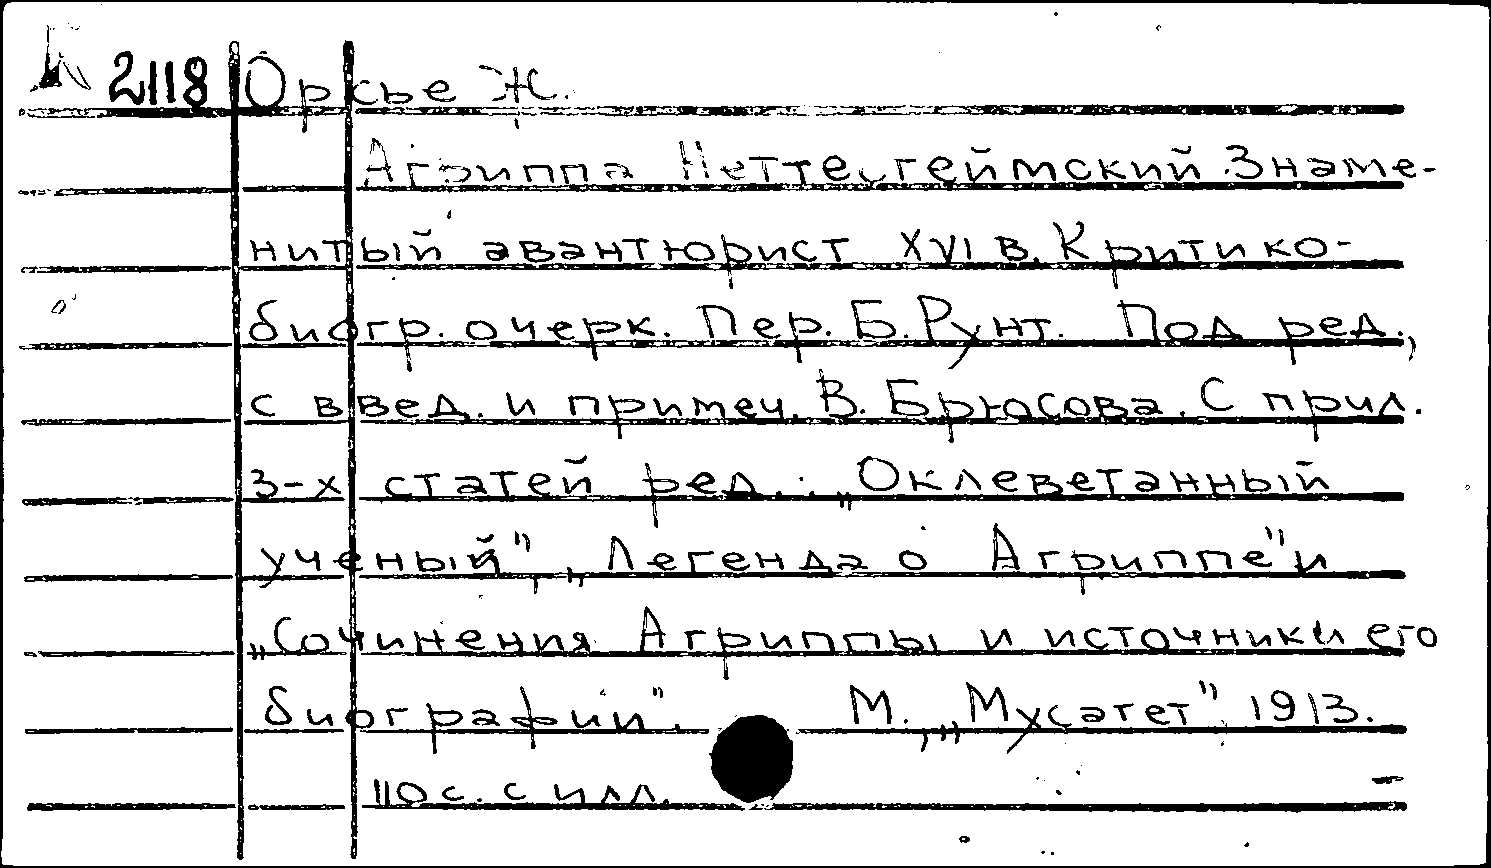 К 2118 Орсье Ж.
Агриппа Неттесгеймский. Знаме-
нитый авантюрист XVI в. Критико-
биогр. очерк. Пер. Б. Рунт. Под ред.,
с введ. и примеч. В. Брюсова. С прил.
3-х статей ред.: „Оклеветанный
ученый", „Легенда о Агриппе" и
„Сочинения Агриппы и источники его
биографии". М., „Мусагет", 1913.
110 с. с илл.